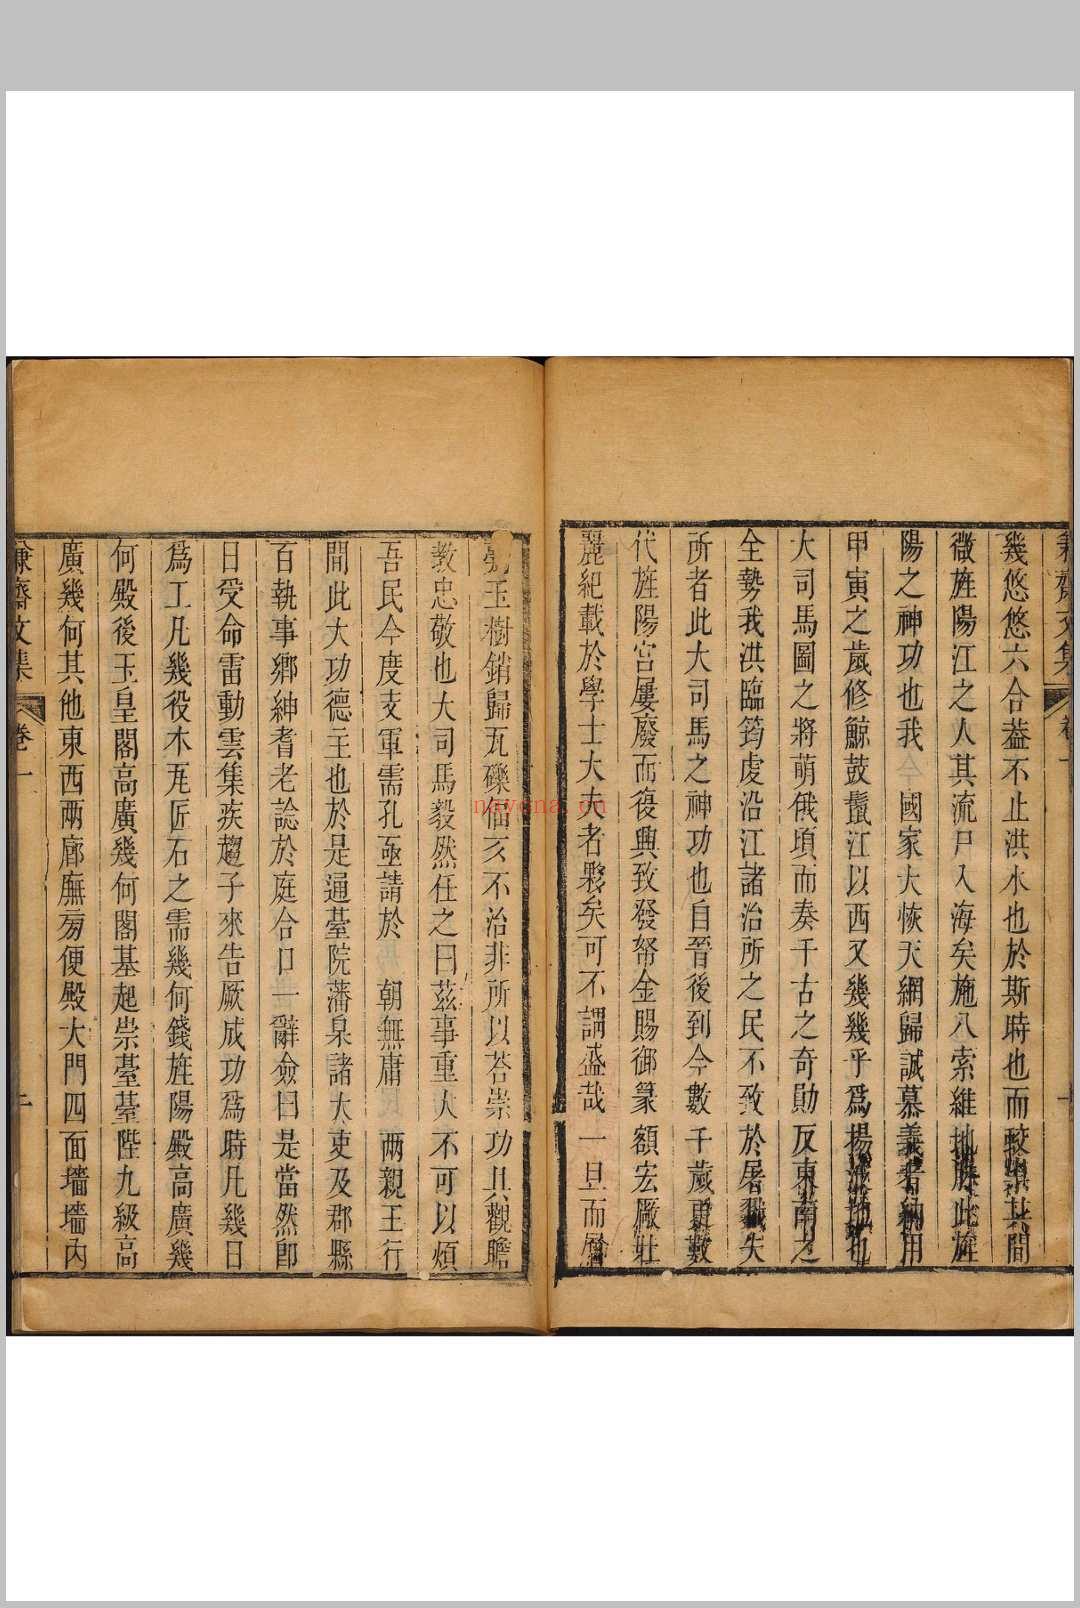 兼齋文集 卷一
幾悠悠六合葢不止洪水也於斯時也而較其間
微旌陽江之人其流尸入海矣施八索維地脉此旌
陽之神功也我今國家大恢天網歸誠慕義者納用
甲寅之歲修鯨鼓鬣江以西又幾幾乎爲揚
大司馬圖之將萌俄頃而奏千古之奇勛反東南之
全勢我洪臨筠虔沿江諸治所之民不致於屠戮失
所者此大司馬之神功也自晉後到今數千歲更數
代旌陽宮屢廢而復興致發帑金賜御篆額宏厰壯
麗紀載於學士大夫者夥矣可不謂盛哉一旦而
玉樹銷歸瓦礫偪亥不治非所以荅崇功具觀瞻
教忠敬也大司馬毅然任之曰茲事重大不可以煩
吾民今度支軍需孔亟請於 朝無庸 兩親王行
間此大功德主也於是通臺院藩臬諸大吏及郡縣
百執事鄉紳耆老諗於庭合口一辭僉曰是當然卽
日受命雷動雲集疾趨子來告厥成功爲時凡幾日
爲工凡幾役木瓦匠石之需幾何錢旌陽殿高廣幾
何殿後玉皇閣高廣幾何閣基起崇臺臺陛九級高
廣幾何其他東西兩廊廡旁便殿大門四面墻墻內
謙齋文集 卷一 二
nayona.cn